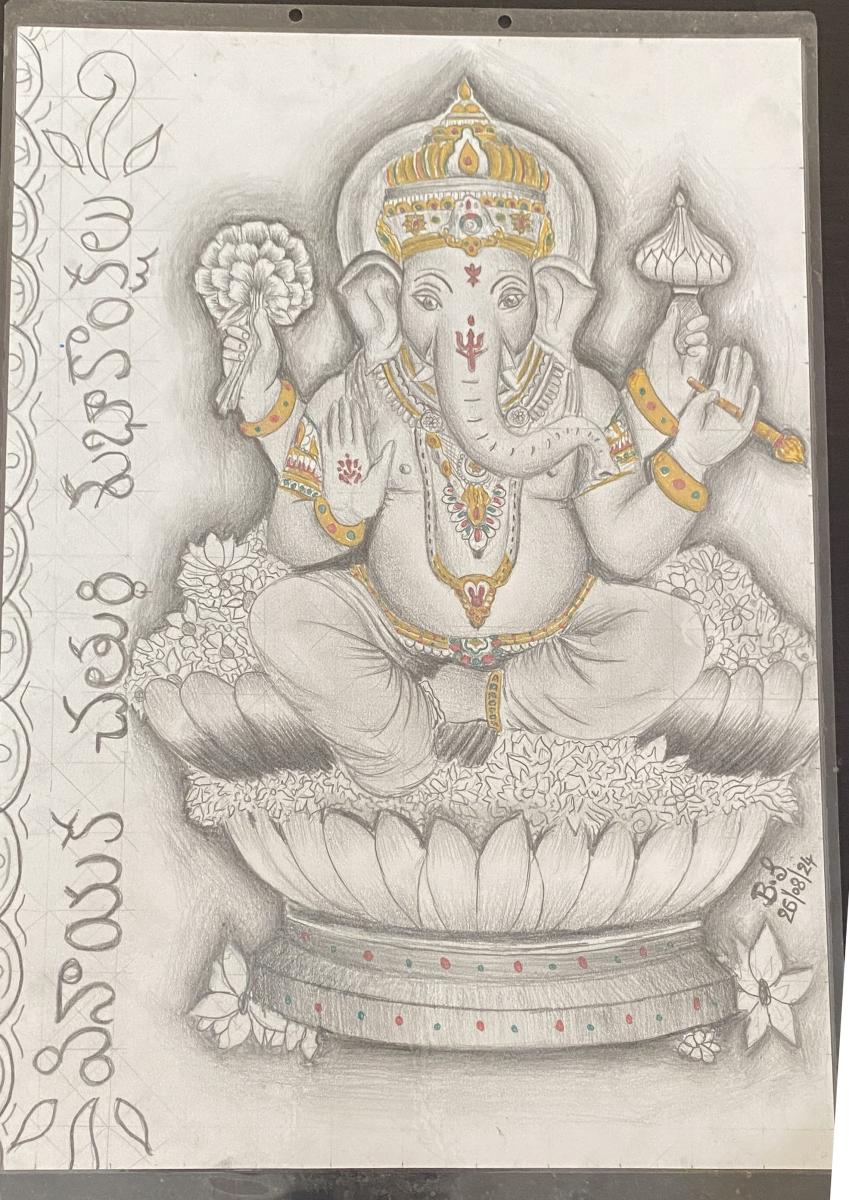 వినాయక చతుర్థి శుభాకాంక్షలు
B.S
26/08/24